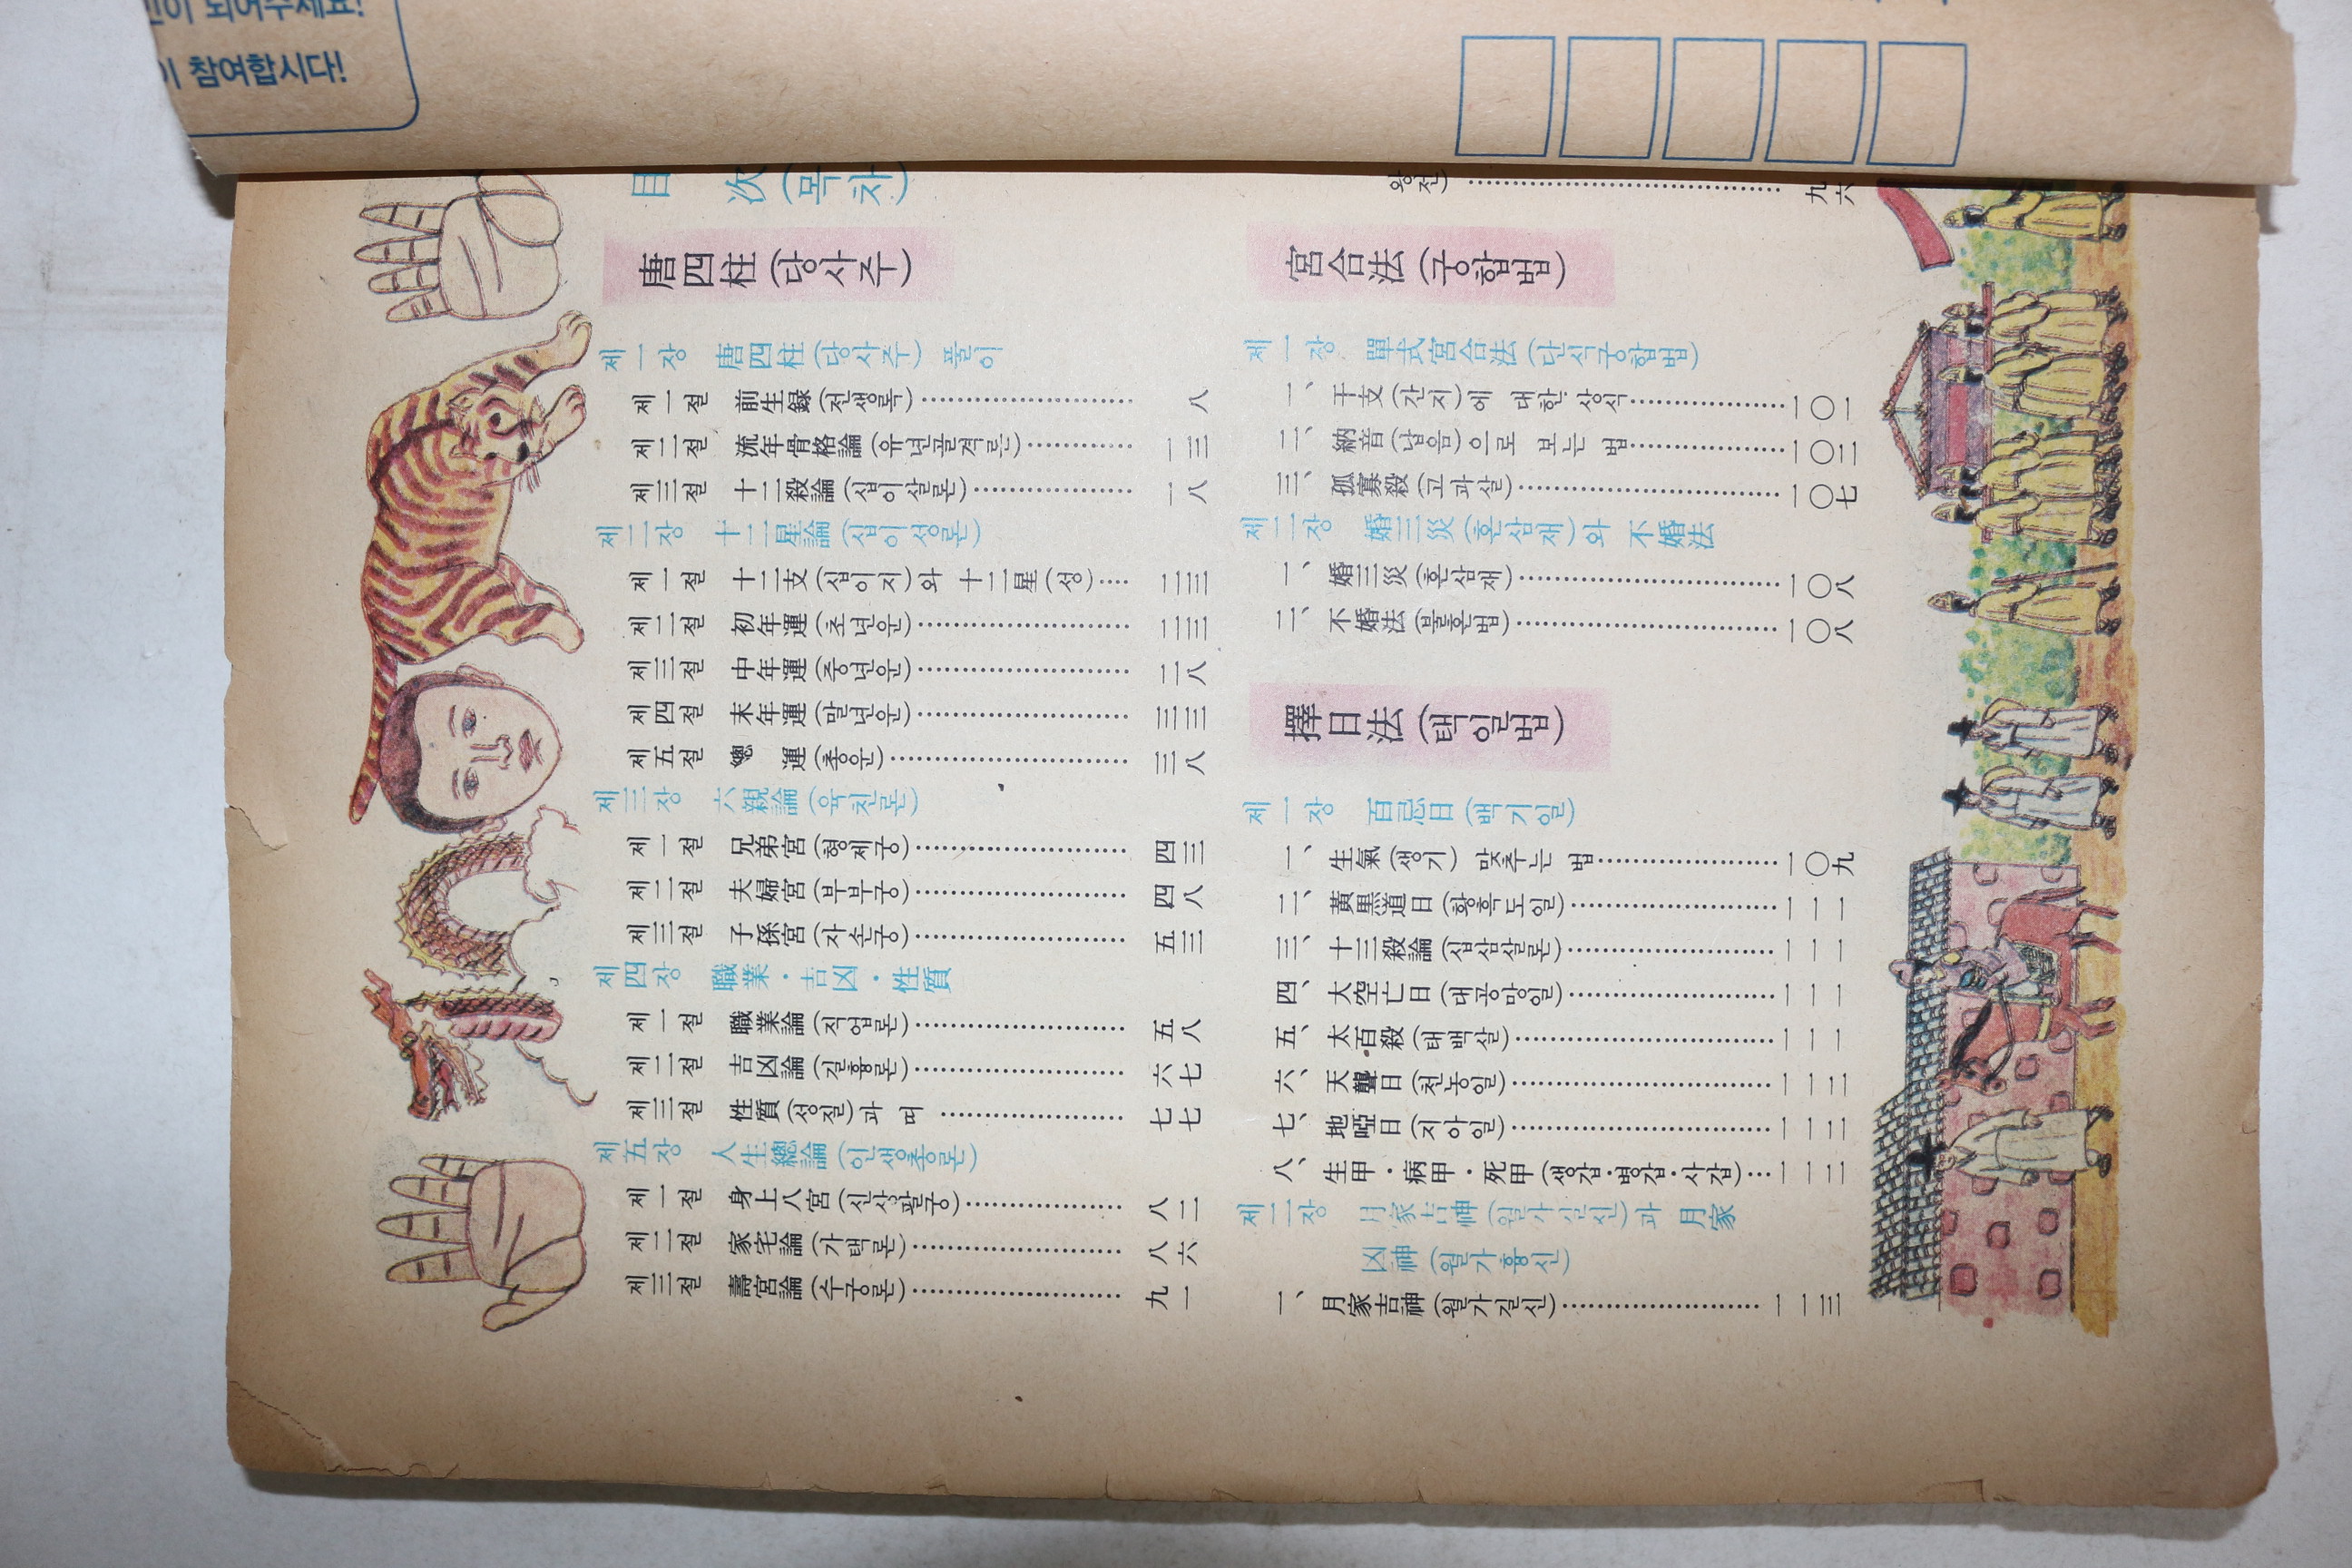 이 되어주세요!
이 참여합시다!
目 次 (목 차)
唐四柱 (당사주)
제 一 장 唐四柱 (당사주) 풀이
제 一 절 前生録 (전생록) …… 八
제 二 절 流年骨格論 (유년골격론) …… 一三
제 三 절 十二殺論 (십이살론) …… 一八
제 二 장 十二星論 (십이성론)
제 一 절 十二支 (십이지) 와 十二星 (성) …… 二三
제 二 절 初年運 (초년운) …… 二三
제 三 절 中年運 (중년운) …… 二八
제 四 절 末年運 (말년운) …… 三三
제 五 절 總 運 (총운) …… 三八
제 三 장 六親論 (육친론)
제 一 절 兄弟宮 (형제궁) …… 四三
제 二 절 夫婦宮 (부부궁) …… 四八
제 三 절 子孫宮 (자손궁) …… 五三
제 四 장 職業・吉凶・性質
제 一 절 職業論 (직업론) …… 五八
제 二 절 吉凶論 (길흉론) …… 六七
제 三 절 性質 (성질) 과 띠 …… 七七
제 五 장 人生總論 (인생총론)
제 一 절 身上八宮 (신상팔궁) …… 八二
제 二 절 家宅論 (가택론) …… 八六
제 三 절 壽宮論 (수궁론) …… 九一
왕전) …… 九六
宮合法 (궁합법)
제 一 장 單式宮合法 (단식궁합법)
一、 干支 (간지) 에 대한 상식 …… 一〇一
二、 納音 (납음) 으로 보는 법 …… 一〇二
三、 孤寡殺 (고과살) …… 一〇七
제 二 장 婚三災 (혼삼재) 와 不婚法
一、 婚三災 (혼삼재) …… 一〇八
二、 不婚法 (불혼법) …… 一〇八
擇日法 (택일법)
제 一 장 百忌日 (백기일)
一、 生氣 (생기) 맞추는 법 …… 一〇九
二、 黃黑道日 (황흑도일) …… 一一一
三、 十三殺論 (십삼살론) …… 一一一
四、 大空亡日 (대공망일) …… 一一一
五、 太百殺 (태백살) …… 一一一
六、 天聾日 (천농일) …… 一一二
七、 地啞日 (지아일) …… 一一二
八、 生甲・病甲・死甲 (생갑・병갑・사갑) … 一一二
제 二 장 月家吉神 (월가길신) 과 月家
凶神 (월가흉신)
一、 月家吉神 (월가길신) …… 一一三